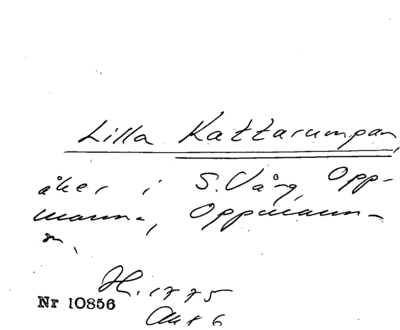 Lilla Kattarumpan,
åker i S. Vång, Opp-
manna, Oppmanna-
n.
H. 1775
Akt 6
Nr 10856